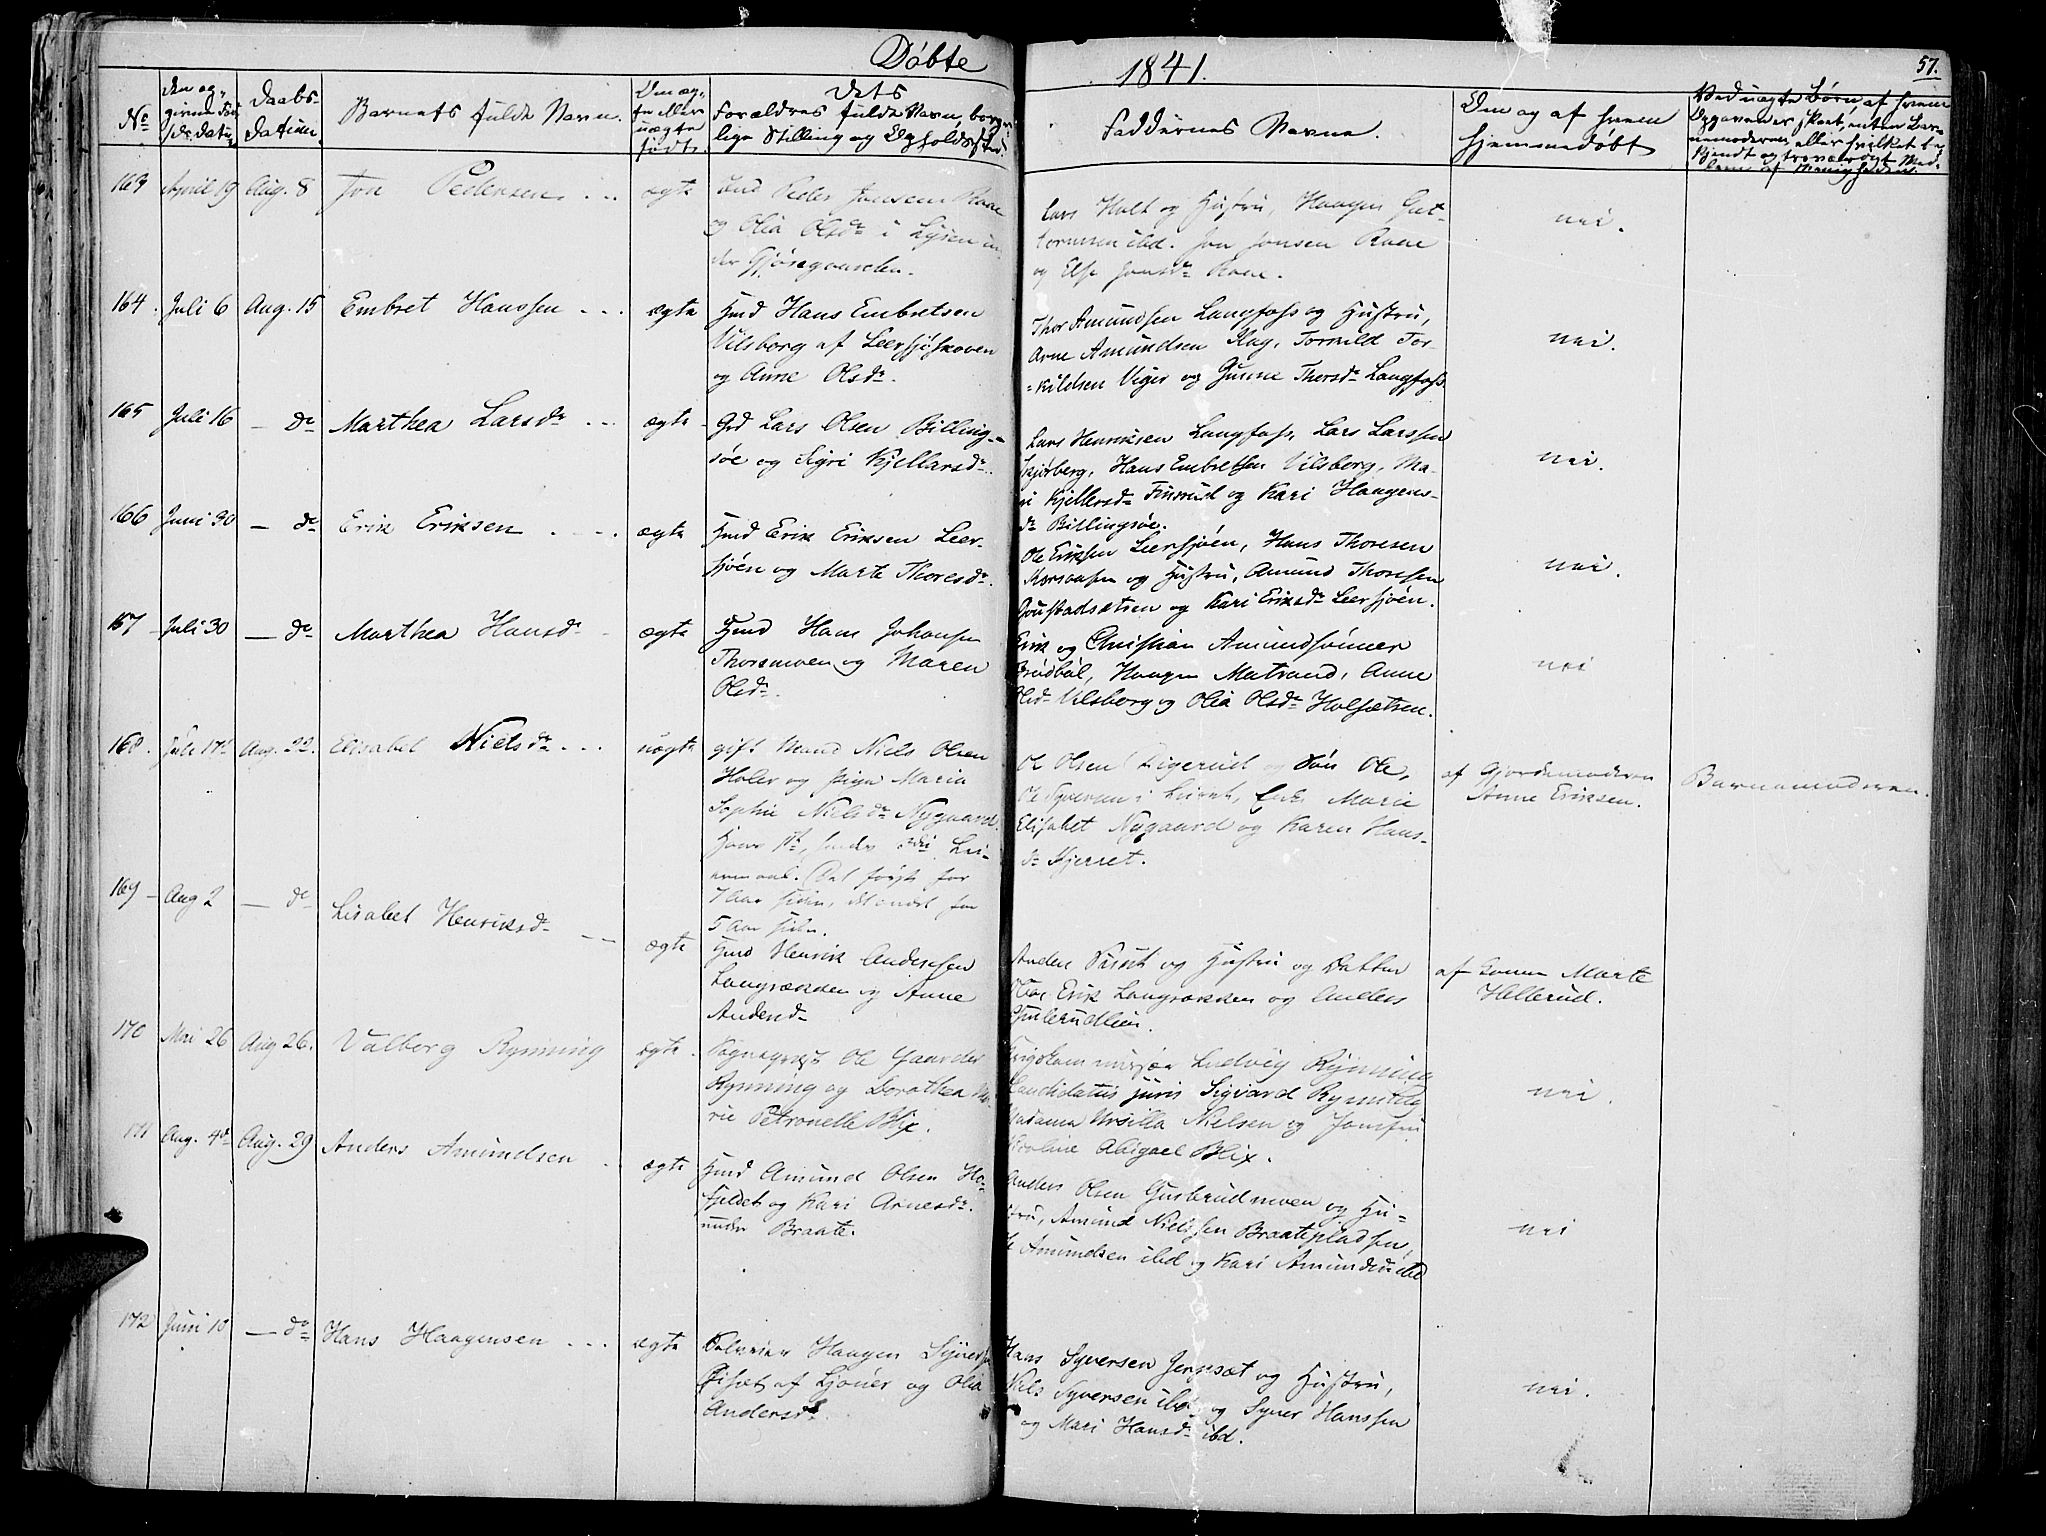 Døbte
1841.
57.
No
Den og-
Daabs-
Datum
Barnets fulde Navn.
uægte
født.
Dets
Forældres fulde Navn, borger-
lige Stilling og Opholdssted.
Faddernes Navne.
Om og af hvem
hjemmedøbt
Ved uægte Børn af hvem
Opgavender skeet, enten Bar-
nemoderen, eller hvilket be-
kjendt og troværdigt Med-
lem af Menigheden.
163 April 19 Aug. 8 Jon Pedersen. ægte Peder Jonsen Raae
og Olia Olsdr i Lysen un-
der Gjøsegaarden.
Lars Holt og Hustru, Haagen Gut-
tormsen ibd. Jon Jonsen Raae
og Else Jonsdr Raae.
nei.
164. Juli 6 Aug. 15 Embret Hanssen ægte Hmd Hans Embretsen
Vilsborg af Leersjøskoven
og Anne Olsdr.
Thor Amundsen Langfoss og Hustru,
Arne Amundsen Kag, Torkild Tor-
kildsen Viger og Gunne Thorsdr Langfoss.
nei.
165 Juli 16 — do Marthea Larsdr ægte Gmd Lars Olsen Billing-
søe og Sigri Kjellarsdr.
Lars Henriksen Langfoss, Lars Larssen
Skjøberg, Hans Embretsen Vilsborg, Ma-
ri Kjellersdr Finsrud og Kari Haagens-
dr Billingsøe.
nei.
166 Juni 30 — do Erik Eriksen ægte Hmd Erik Eriksen Leer-
sjøen og Marte Thoresdr.
Ole Eriksen Leersjøen, Hans Thoresen
Korsaasen og Hustru, Amund Thoresen
Goustadsætren og Kari Eriksdr Leersjøen.
nei.
167 Juli 30 — do Marthea Hansdr ægte Hmd Hans Johansen
Thorsmoen og Maren
Olsdr.
Erik og Christian Amundsønner
Brødbøl, Haagen Matrand, Anne
Olsdr Vilsborg og Olia Olsdr Holsætren.
nei
168. Juli 17de Aug. 22. Elisabet Nielsdr uægte gift Mand Niels Olsen
Holer og Pige Maria
Sophie Nielsdr Nygaard.
Hans 1ste, hendes 3die Lei-
ermaal. (Det første for
7 Aar siden, det andet for
5 Aar siden.
Ole Olsen Digerud og Søn Ole,
Ole Syversen i Leiret, Enke Marie
Elisabet Nygaard og Karen Hans-
dr Kjerret.
af Gjordemoderen
Anne Eriksen.
Barnemoderen.
169 Aug 2 — do Lisabet Henriksdr ægte Hmd Henrik Andersen
Langrækken og Anne
Andersdr
Anders Smidt og Hustru og Datter
Olea, Erik Langrækken og Anders
af Konen Marte
Hellerud.
170 Mai 26 Aug 26. Valborg Rynning ægte. Sognepræst Ole Gaarder
Rynning og Dorothea Ma-
rie Petronelle Blix.
Krigskommissær Ludvig Rynning
Candidatus juris Sigvard Rynning
Madame Ursilla Nielsen og Jomfru
Karoline Abigael Blix.
nei.
171 Aug. 4de Aug. 29 Anders Amundsen ægte Hmd Amund Olsen Ho-
fjeldet og Kari Arnesdr.
under Braate.
Anders Olsen Gusbrudmoen og Hu-
stru, Amund Nielssen Braatepladsen,
Ole Amundsen ibd og Kari Amundsdr ibd
nei
172 Juni 10 — do Hans Haagensen ægte Selveier Haagen Syversen
af Ljøner og Olia
Andersdr.
Hans Syversen Jerpsæt og Hustru,
Niels Syversen ibd og Syver Hanssen
og Mari Hansdr ibd.
nei.